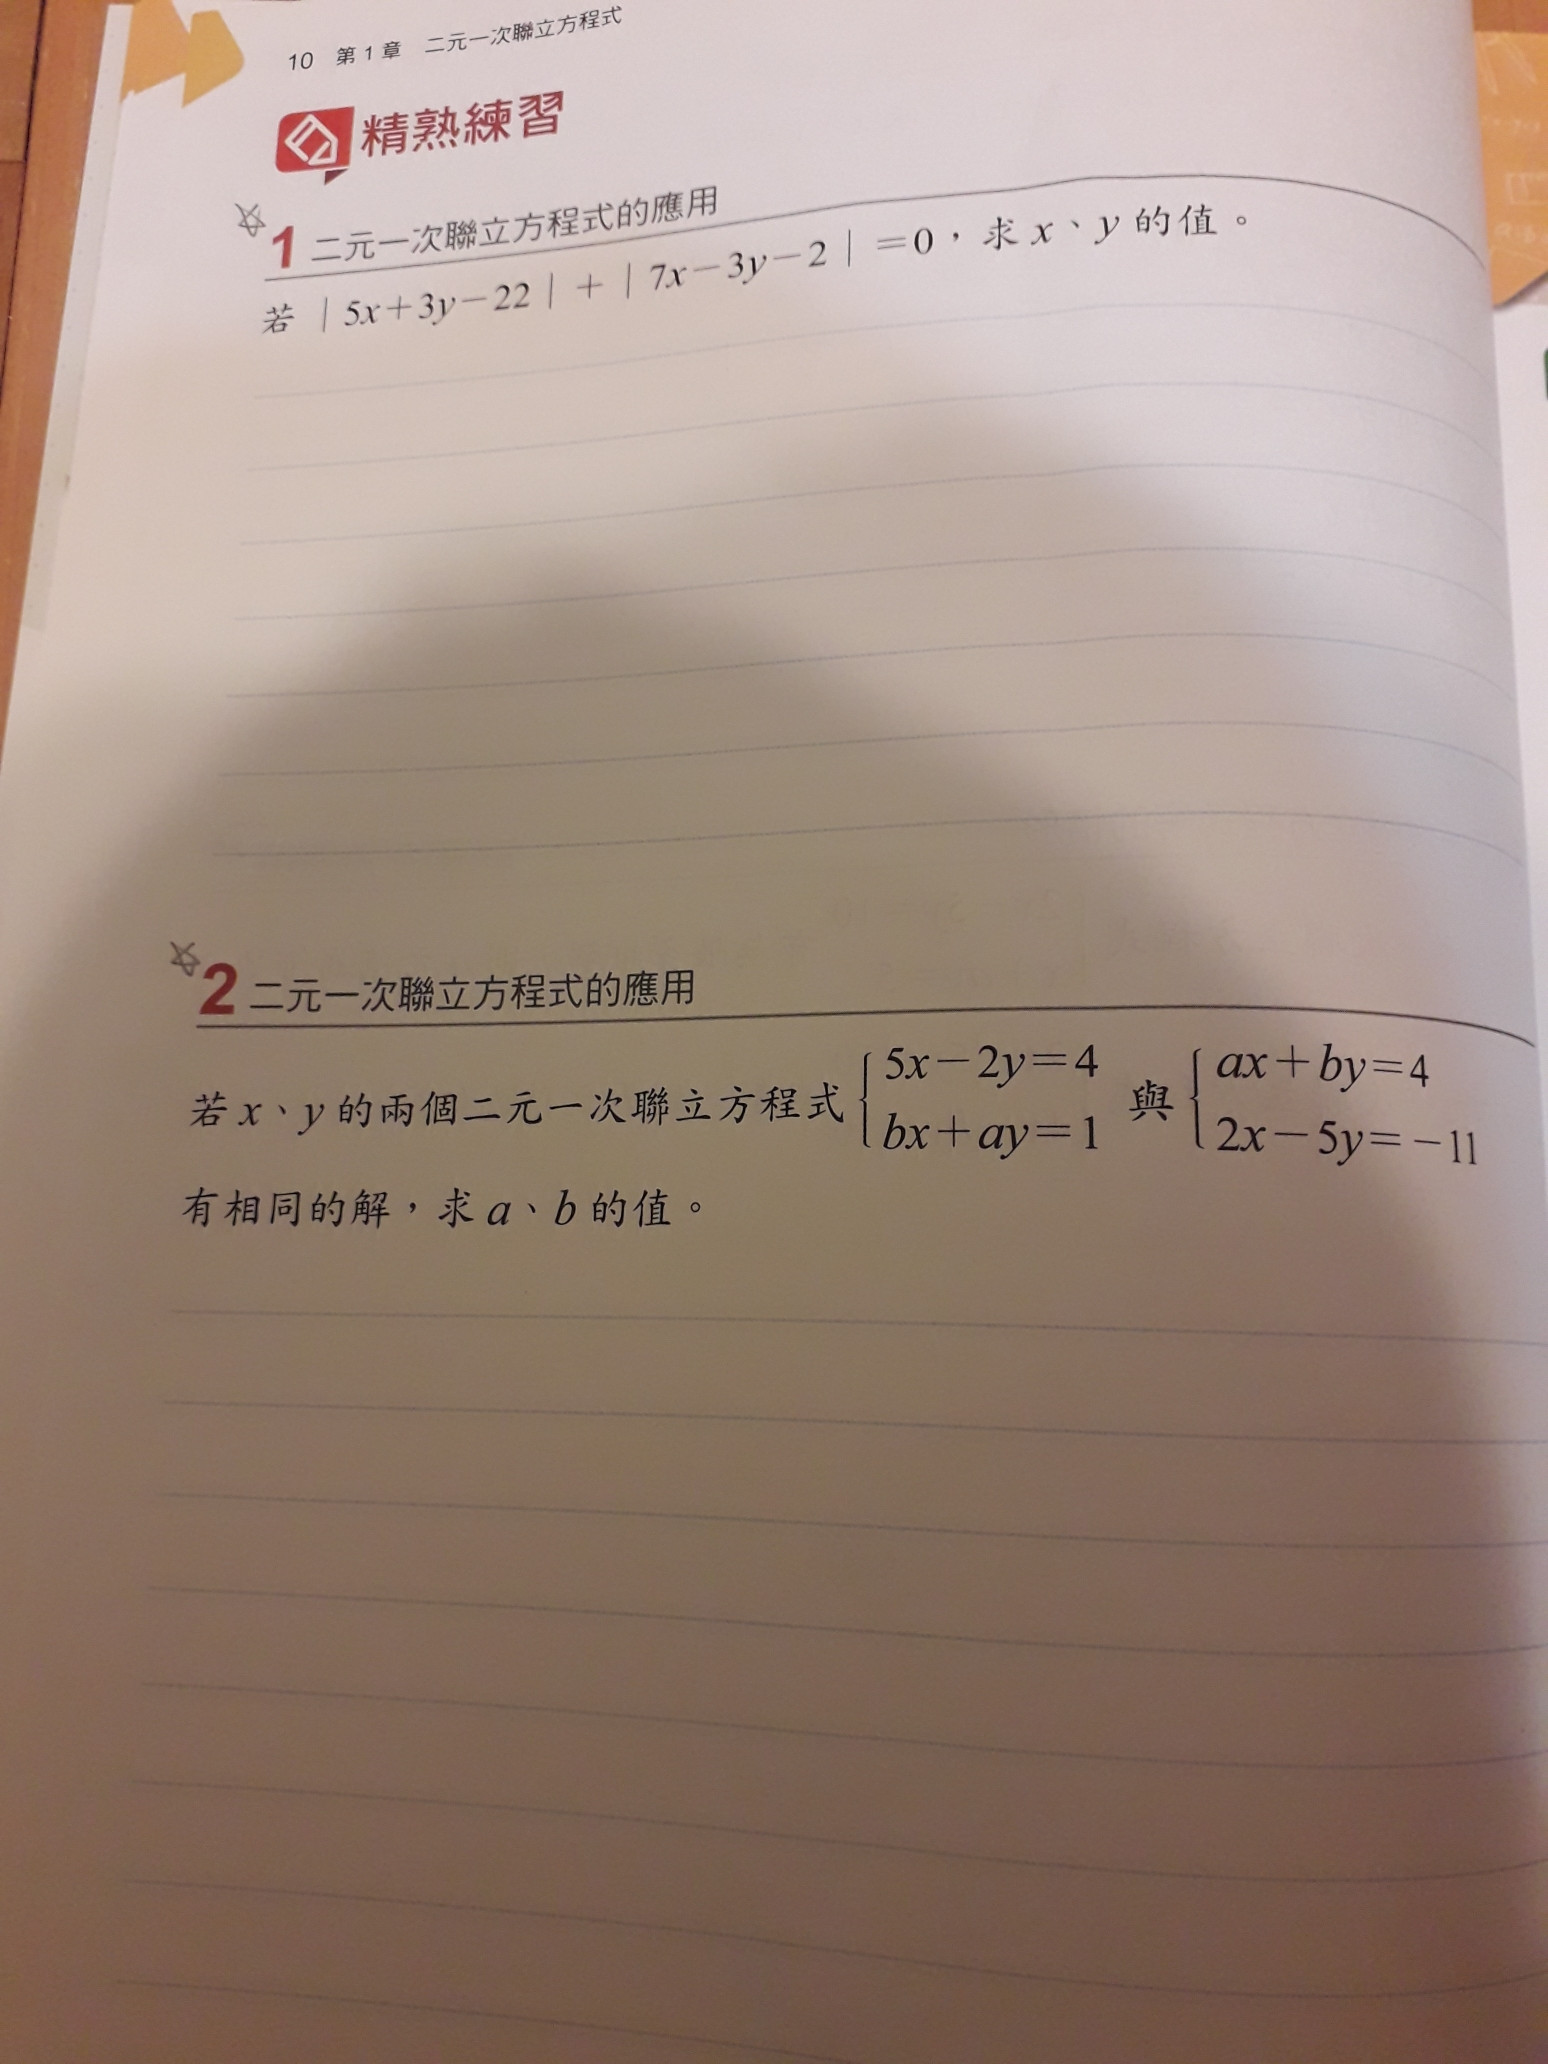 10 第1章 二元一次聯立方程式
精熟練習
1 二元一次聯立方程式的應用
若 | 5x+3y-22 | + | 7x-3y-2 | =0，求 x、y 的值。
2 二元一次聯立方程式的應用
若 x、y 的兩個二元一次聯立方程式 { 5x-2y=4 bx+ay=1 與 { ax+by=4 2x-5y=-11
有相同的解，求 a、b 的值。